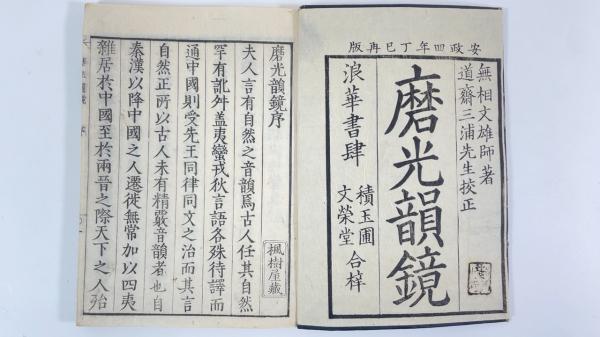 安政四年丁巳再版
無相文雄師著
道齋三浦先生挍正
磨光韻鏡
浪華書肆
積玉圃
文榮堂
合梓
磨光韻鏡序
楓樹屋藏
夫人言有自然之音韻焉古人任其自然
罕有訛舛盖夷蠻戎狄言語各殊待譯而
通中國則受先王同律同文之治而其言
自然正所以古人未有精覈音韻者也自
秦漢以降中國之人遷徙無常加以四夷
雜居於中國至於兩晉之際天下之人殆